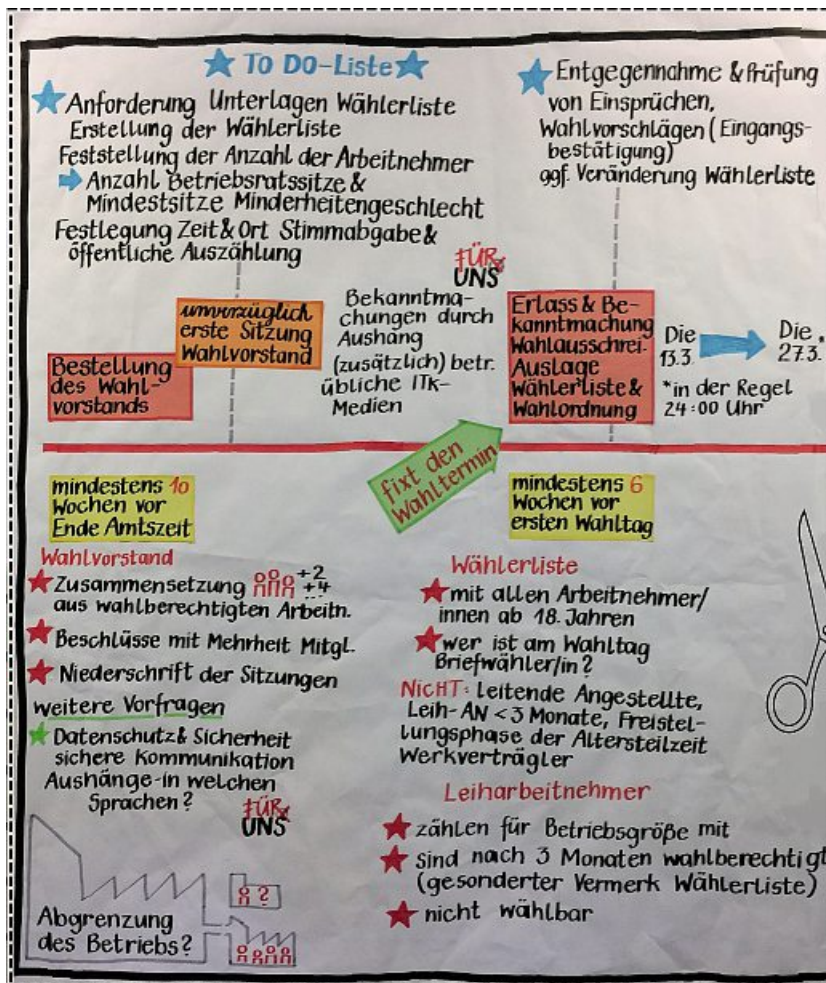 To Do-Liste
Anforderung Unterlagen Wählerliste
Erstellung der Wählerliste
Feststellung der Anzahl der Arbeitnehmer
Anzahl Betriebsratssitze &
Mindestsitze Minderheitengeschlecht
Festlegung Zeit & Ort Stimmabgabe &
öffentliche Auszählung
Entgegennahme & Prüfung
von Einsprüchen,
Wahlvorschlägen (Eingangs-
bestätigung)
ggf. Veränderung Wählerliste
Bestellung
des Wahl-
vorstands
unverzüglich
erste Sitzung
Wahlvorstand
FÜR
UNS
Bekanntma-
chungen durch
Aushang
(zusätzlich) betr.
übliche ITK-
Medien
Erlass & Be-
kanntmachung
Wahlausschrei-
Auslage
Wählerliste &
Wahlordnung
Die
13.3.
Die *
27.3.
*in der Regel
24:00 Uhr
fixt den
Wahltermin
mindestens 10
Wochen vor
Ende Amtszeit
mindestens 6
Wochen vor
ersten Wahltag
Wahlvorstand
Zusammensetzung +2
+4
aus wahlberechtigten Arbeitn.
Beschlüsse mit Mehrheit Mitgl.
Niederschrift der Sitzungen
weitere Vorfragen
Datenschutz & Sicherheit
sichere Kommunikation
Aushänge-in welchen
Sprachen?
FÜR
UNS
Abgrenzung
des Betriebs?
?
Wählerliste
mit allen Arbeitnehmer/
innen ab 18. Jahren
wer ist am Wahltag
Briefwähler/in?
NICHT: leitende Angestellte,
Leih-AN < 3 Monate, Freistel-
lungsphase der Altersteilzeit
Werkverträgler
Leiharbeitnehmer
zählen für Betriebsgröße mit
sind nach 3 Monaten wahlberechtigt
(gesonderter Vermerk Wählerliste)
nicht wählbar